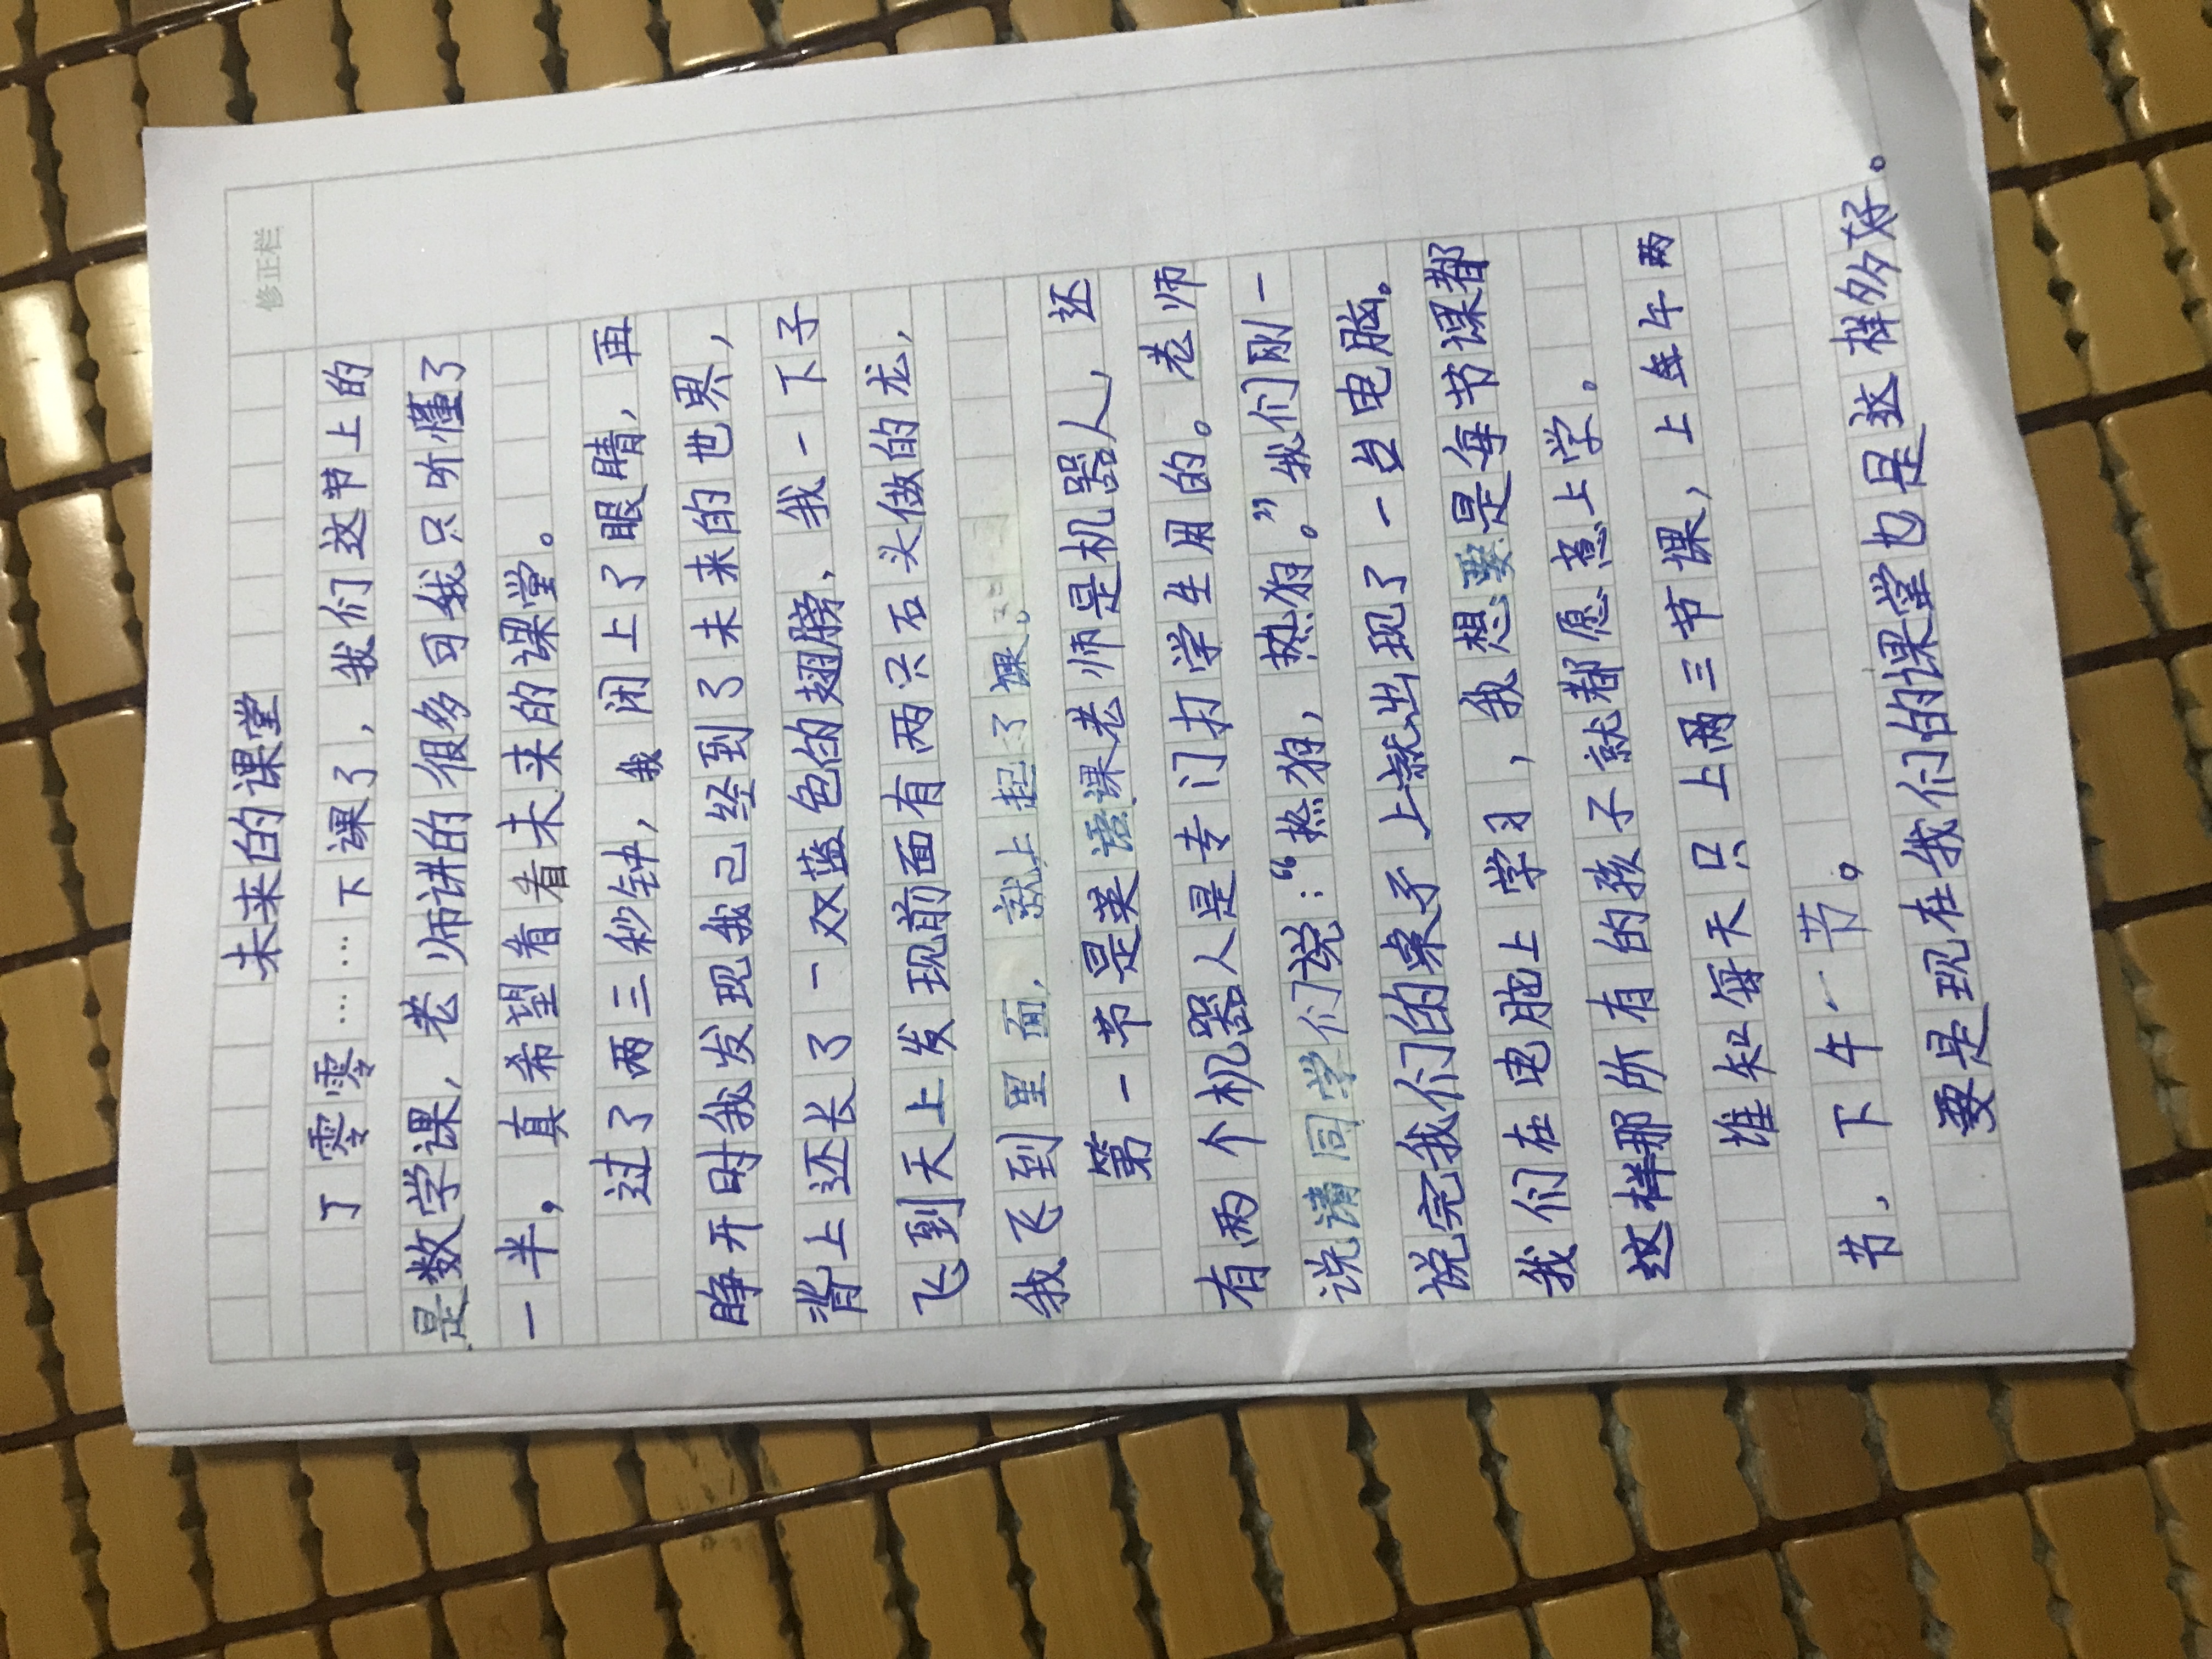 修正栏
未来的课堂
丁零零……下课了，我们这节上的
是数学课，老师讲的很多可我只听懂了
一半，真希望看看未来的课堂。
过了两三秒钟，我闭上了眼睛，再
睁开时我发现我己经到了未来的世界，
背上还长了一双蓝色的翅膀，我一下子
飞到天上发现前面有两只石头做的龙，
我飞到里面，就上起了课。
第一节是英语课老师是机器人，还
有两个机器人是专门打学生用的。老师
说请同学们说：“热狗，热狗。”我们刚一
说完我们的桌子上就出现了一台电脑。
我们在电脑上学习，我想要是每节课都
这样那所有的孩子就都愿意上学。
谁知每天只上两三节课，上午两
节、下午一节。
要是现在我们的课堂也是这样多好。